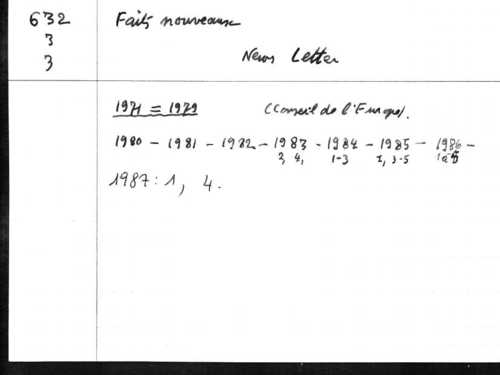 632
3
3
Faits nouveaux
News Letter
1971 = 1979 (Conseil de l'Europe).
1980 - 1981 - 1982 - 1983 - 1984 - 1985 - 1986 -
3, 4, 1-3 1, 3-5 1 à 5
1987: 1, 4.